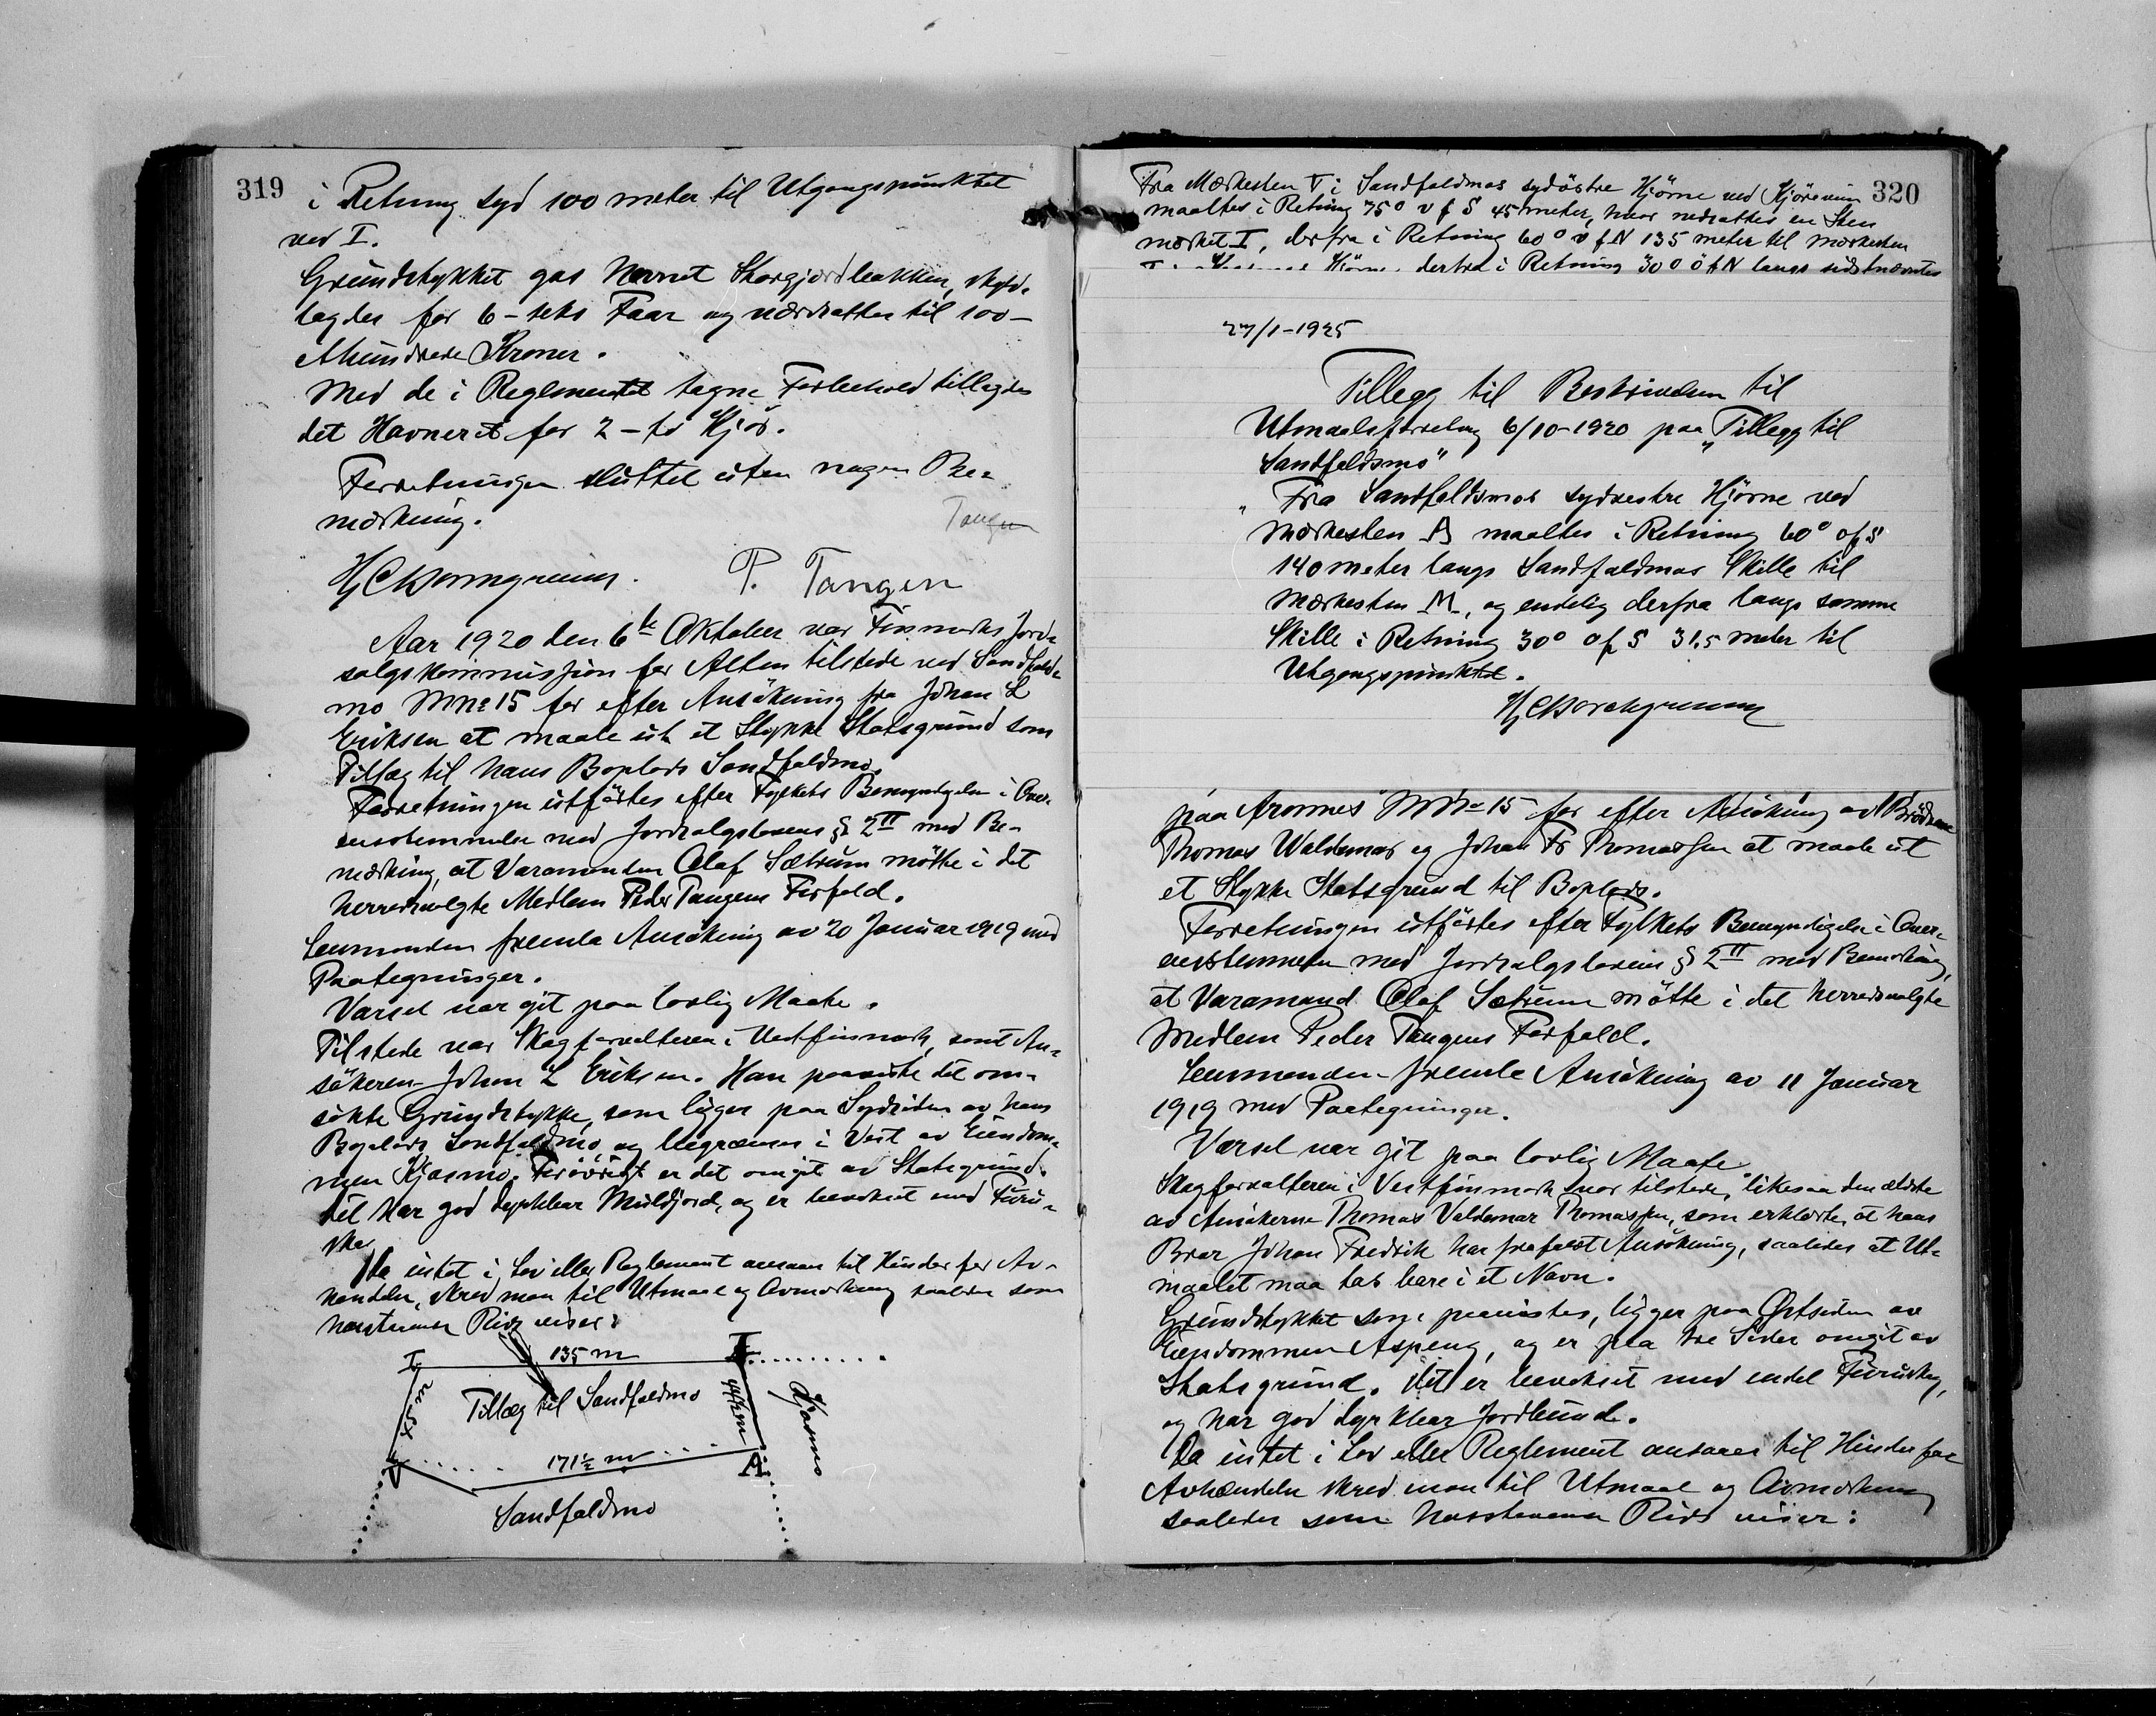 319
i Retning syd 100 meter til Utgangspunktet
ved I.
Grundstykket gas Navnet Storgjordbakken, skyld-
lagdes for 6 - seks Faar og værdsattes til 100 -
Ethundrede Kroner.
Med de i Reglementet tagne Forbehold tillagdes
det Havneret for 2 - to Kjör.
Forretningen sluttet uten nogen Be-
merkning.
Tangen
P. Tangen
Aar 1920 den 6te Oktober var Finmarks Jord-
salgskommission for Alten tilstede ved Sandfald-
mo MNo 15 for efter Ansökning fra Johan L
Eriksen at maale ut et Stykke Statsgrund som
Tillæg til hans Boplads Sandfaldmo.
Forretningen utförtes efter Fylkets Bemyndigelse i Over-
ensstemmelse med Jordsalgslovens § 2 II med Be-
merkning, at Varamanden Olaf Sætrum mötte i det
herredsvalgte Medlem Peder Tangens Forfald.
Lensmanden fremla Ansökning av 20 Januar 1919 med
Paategninger.
Varsel var git paa lovlig Maate.
Tilstede var Skogforvalteren i Vestfinmark, samt An-
sökeren Johan L Eriksen. Han paaviste det om-
sökte Grundstykke, som ligger paa Sydsiden av hans
Boplads Sandfaldmo og begrænses i Vest av Eiendom-
men Kjosmo. Forövrigt er det omgit av Statsgrund.
Det har god dyrkbar Muldjord, og er bevokset med Furu-
skog
Da intet i Lov eller Reglement ansaaes til Hinder for Av-
hændelse, skred man til Utmaal og Avmerkning saaledes som
hosstaaende Rids viser:
I 135 m I
45 m Tillæg til Sandfaldmo 44½ m Kjosmo
V 171½ m A
Sandfaldmo
320
Fra Merkesten V i Sandfaldmos sydöstre Hjörne ved Kjöreveien
maaltes i Retning 75° v f S 45 meter, hvor nedsattes en Sten
merket I, derfra i Retning 60° v f N 135 meter til Merkesten
Hjörne, derfra i Retning 30° ö f N langs sidstnævntes
27/1-1925
Tillegg til Beskrivelsen til
Utmaalsforretning 6/10-1920 paa "Tillegg til
Sandfaldsmo"
"Fra Sandfaldsmos sydvestre Hjörne ved
Merkesten A maaltes i Retning 60° ö f S
140 meter langs Sandfaldmos Skille til
Merkesten M, og endelig derfra langs samme
Skille i Retning 30° ö f S 31.5 meter til
Utgangspunktet.
paa Aronnes MNo 15 for efter Ansökning av Brödrene
Thomas Waldemar og Johan Fr Thomassen at maale ut
et Stykke Statsgrund til Boplads.
Forretningen utförtes efter Fylkets Bemyndigelse i Over-
ensstemmelse med Jordsalgslovens § 2 II med Bemerkning,
at Varamand Olaf Sætrum mötte i det herredsvalgte
Medlem Peder Tangens Forfald.
Lensmanden fremla Ansökning av 11 Januar
1919 med Paategninger.
Varsel var git paa lovlig Maate
Skogforvalteren i Vestfinmark var tilstede, likesaa den ældste
av Ansökerne Thomas Valdemar Thomassen, som erklærte, at hans
Bror Johan Fredrik har frafaldt Ansökning, saaledes at Ut-
maalet maa tas bare i et Navn.
Grundstykket som paavistes, ligger paa Østsiden av
Eiendommen Aspeng, og er paa tre Sider omgit av
Statsgrund. Det er bevokset med endel Furuskog,
og har god dyrkbar Jordbund.
Da intet i Lov eller Reglement ansaaes til Hinder for
Avhændelse skred man til Utmaal og Avmerkning
saaledes som hosstaaende Rids viser: